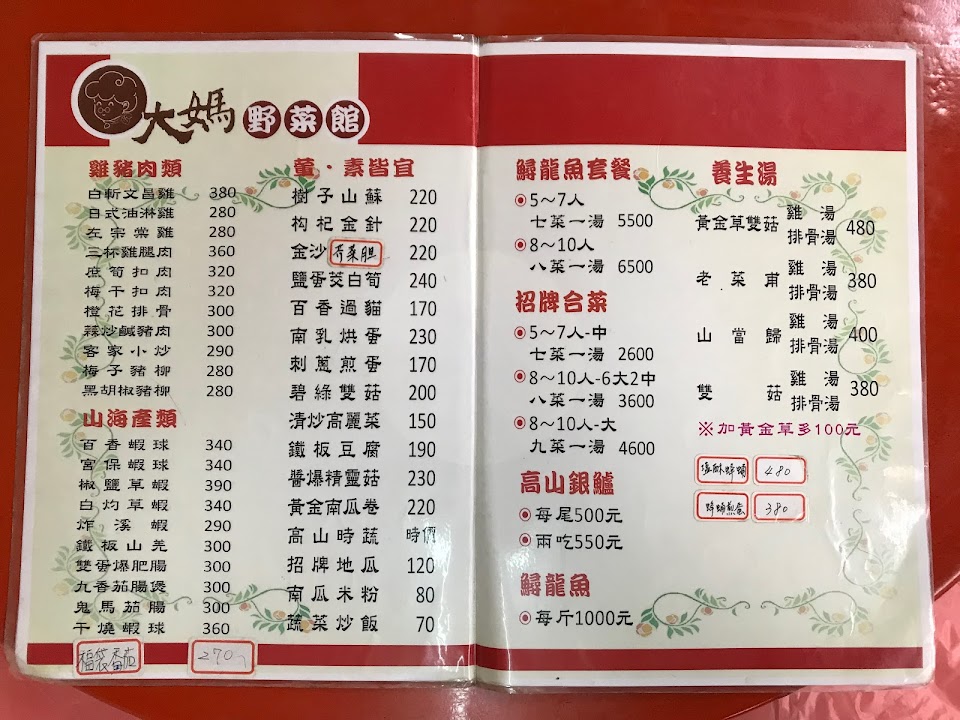 大媽野菜館
雞豬肉類
白斬文昌雞 380
日式油淋雞 280
左宗棠雞 280
三杯雞腿肉 360
庶筍扣肉 320
梅干扣肉 320
橙花排骨 300
蒜炒鹹豬肉 300
客家小炒 290
梅子豬柳 280
黑胡椒豬柳 280
山海產類
百香蝦球 340
宮保蝦球 340
椒鹽草蝦 390
白灼草蝦 340
炸溪蝦 290
鐵板山羌 300
雙蛋爆肥腸 300
九香茄腸煲 300
鬼馬茄腸 300
干燒蝦球 360
福袋番茄 270
葷·素皆宜
樹子山蘇 220
枸杞金針 220
金沙 220
鹽蛋茭白筍 240
百香過貓 170
南乳烘蛋 230
刺蔥煎蛋 170
碧綠雙菇 200
清炒高麗菜 150
鐵板豆腐 190
醬爆精靈菇 230
黃金南瓜卷 220
高山時蔬 時價
招牌地瓜 120
南瓜米粉 80
蔬菜炒飯 70
鱘龍魚套餐
5～7人
七菜一湯 5500
8～10人
八菜一湯 6500
招牌合菜
5～7人-中
七菜一湯 2600
8～10人-6大2中
八菜一湯 3600
8～10人-大
九菜一湯 4600
高山銀鱸
每尾500元
兩吃550元
鱘龍魚
每斤1000元
養生湯
黃金草雙菇 雞湯 排骨湯 480
老菜甫 雞湯 排骨湯 380
山當歸 雞湯 排骨湯 400
雙菇 雞湯 排骨湯 380
※加黃金草多100元
480
380